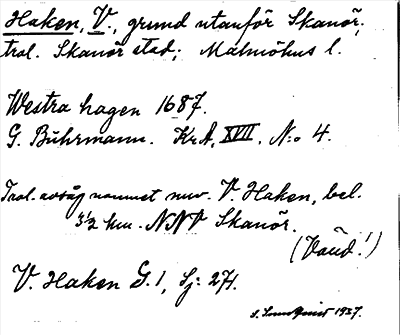 Haken, V., grund utanför Skanör;
trol. Skanör stad; Malmöhus l.
Westra hagen 1687.
G. Buhrmann. KrA, XVII, N:o 4.
Trol. avsåg namnet nuv. V. Haken, bel.
3½ km. NNV Skanör.
(Vänd!)
V. Haken G. 1, Sj: 271.
1937.